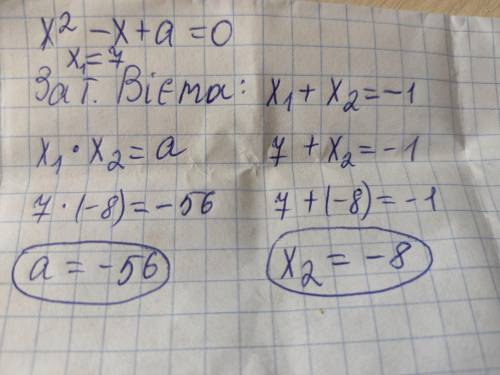 x² - x + a = 0
x₁ = 7
За т. Вієта:
x₁ + x₂ = -1
x₁ · x₂ = a
7 + x₂ = -1
7 · (-8) = -56
7 + (-8) = -1
a = -56
x₂ = -8